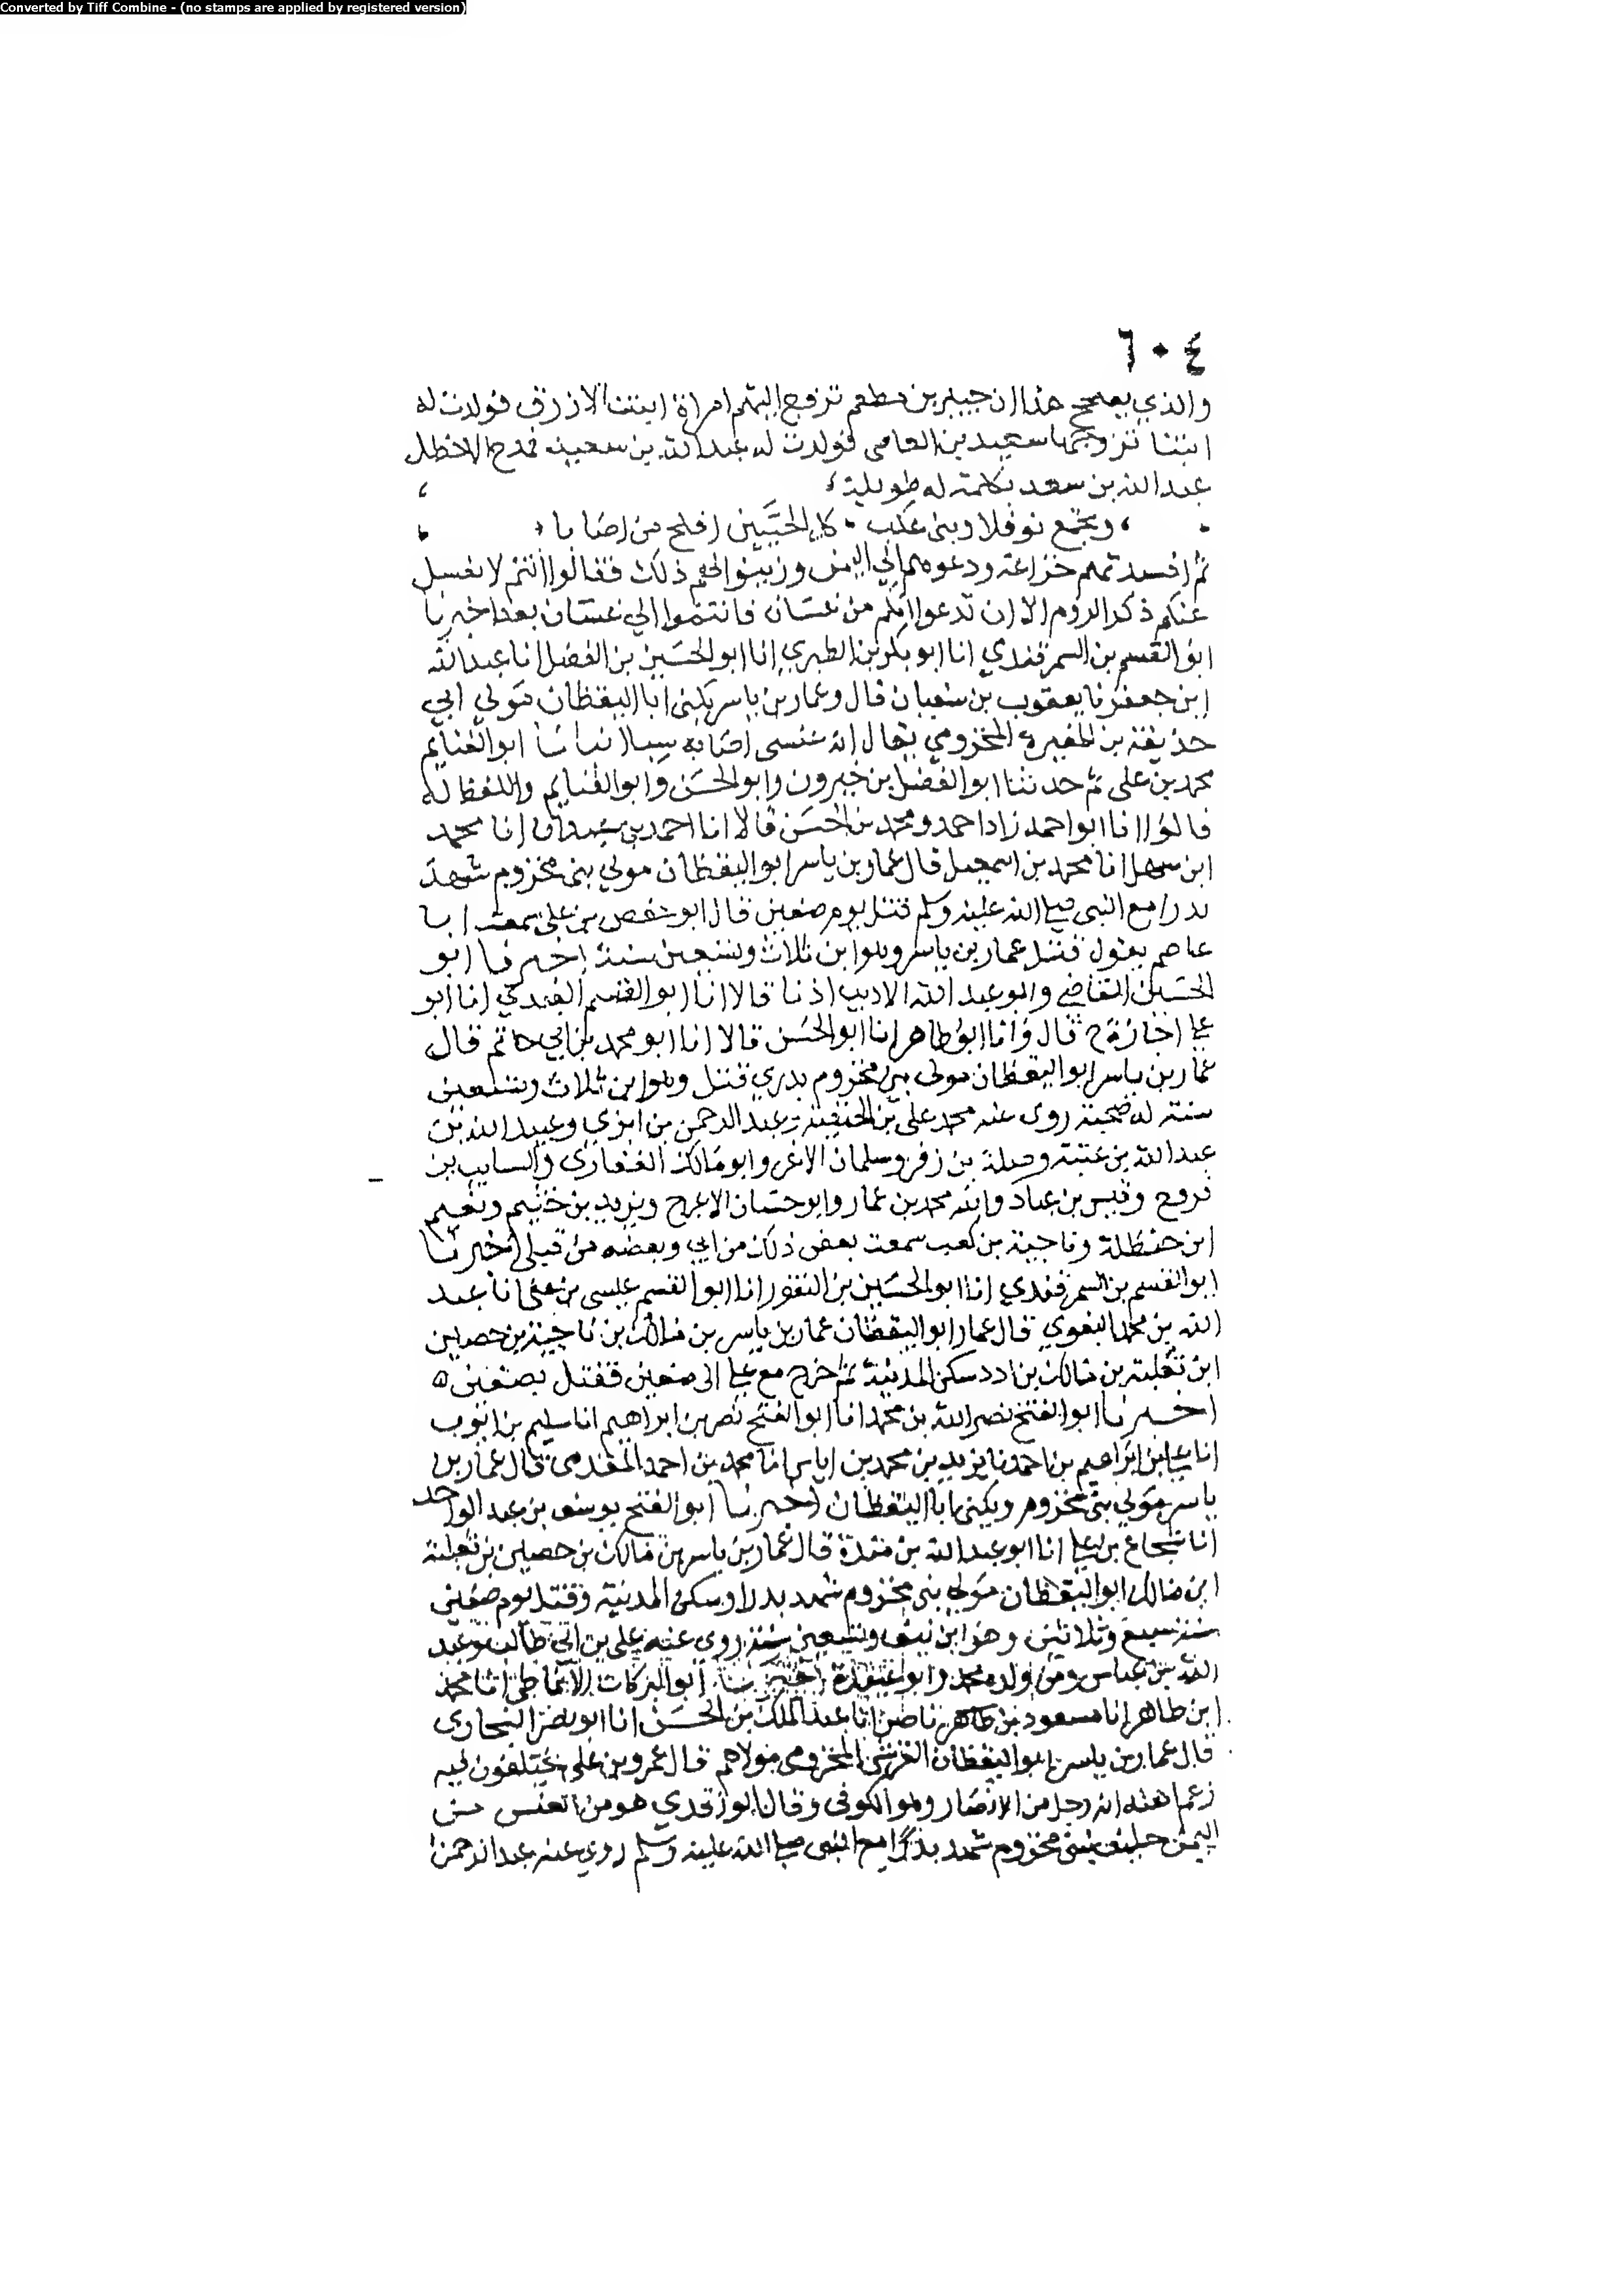 Converted by Tiff Combine - (no stamps are applied by registered version)
٦٠٤
والذي يصحح هذا ان جبير بن مطعم تزوج اليهم امراة ابنة الازرق فولدت له
ابنتا تزوجها سعيد بن العاصي فولدت له عبدالله بن سعيد فمدح الاخطل
عبدالله بن سعد بكلمة له طويلة
وتجمع نوفلا وبني عكب كلا الحيين افلح من اصابا
ثم افسدتهم خزاعة ودعوهم الي اليمن وزينوا لهم ذلك فقالوا انتم لا يغسل
عنكم ذكر الروم الا ان تدعوا انكم من غسان فانتموا الي غسان بعد اخبرنا
ابو القسم بن السمرقندي انا ابو بكر بن الطبري انا ابو الحسين بن الفضل انا عبدالله
ابن جعفر نا يعقوب بن سفيان قال وعمار بن ياسر يكنى ابا اليقظان مولي ابي
حذيفة بن المغيرة المخزومي يقال انه عنسي اصابه سبا انبانا ابو الغنايم
محمد بن علي ثم حدثنا ابو الفضل بن خيرون وابو الحسن وابو الغنايم واللفظ له
قالوا انا ابو احمد زاد احمد ومحمد بن الحسن قالا انا احمد بن عبدان انا محمد
ابن سهل انا محمد بن اسمعيل قال عمار بن ياسر ابو اليقظان مولي بني مخزوم شهد
بدرا مع النبي صلى الله عليه وسلم قتل يوم صفين قال ابو حفص بن علي سمعت ابا
عاصم يقول قتل عمار بن ياسر وهو ابن ثلاث وتسعين سنة اخبرنا ابو
الحسين القاضي وابو عبد الله الاديب اذنا قالا انا ابو القسم العبدي انا ابو
علي اجازة ح قال وانا ابو طاهر انا ابو الحسن قالا انا ابو محمد بن ابي حاتم قال
عمار بن ياسر ابو اليقظان مولى بني مخزوم بدري قتل وهو ابن ثلاث وتسعين
سنة له صحبة روى عنه محمد علي بن الحنفية وعبد الرحمن بن ابزي وعبيد الله بن
عبدالله بن عتبة وصلة بن زفر وسلمان الاغر وابو مالك الغفاري والسايب بن
فروح وقيس بن عباد وابنه محمد بن عمار وابو حسان الاعرج ويزيد بن خثيم ونعيم
ابن حنظلة وناجية بن كعب سمعت بعض ذلك من ابي وبعضه من قبلي اخبرنا
ابو القسم بن السمرقندي انا ابو الحسين بن النقور انا ابو القسم عيسى بن علي انا عبد
الله بن محمد البغوي قال عمار ابو اليقظان عمار بن ياسر بن مالك بن ناجية بن حصين
ابن ثعلبة بن مالك بن ادد سكن المدينة ثم خرج مع علي الى صفين فقتل بصفين
اخبرنا ابو الفتح نصر الله بن محمد انا ابو الفتح نصر بن ابراهيم انا سليم بن ايوب
انا علي بن ابراهيم بن احمد نا يزيد بن محمد بن اياس انا محمد بن احمد المقدمي قال عمار بن
ياسر مولي بني مخزوم ويكنى ابا اليقظان اخبرنا ابو الفتح يوسف بن عبد الواحد
انا شجاع بن علي انا ابو عبد الله بن مندة قال عمار بن ياسر بن مالك بن حصين بن ثعلبة
ابن مالك ابو اليقظان مولي بني مخزوم شهد بدرا وسكن المدينة وقتل يوم صفين
سنة سبع وثلاثين وهو ابن نيف وتسعين سنة روي عنه علي بن ابي طالب وعبد
الله بن عباس ومن ولده محمد وابو عبيدة اخبرنا ابو البركات الانماطي انا محمد
ابن طاهر انا مسعود بن ناصر انا عبد الملك بن الحسن انا ابو نصر البخاري
قال عمار بن ياسر ابو اليقظان القرشي المخزومي مولاهم قال عمرو بن علي يختلفون فيه
زعم اهله انه رجل من الانصار وهو الكوفي وقال الواقدي هو من العنس من
اليمن حليف بني مخزوم شهد بدرا مع النبي صلى الله عليه وسلم روي عنه عبد الرحمن